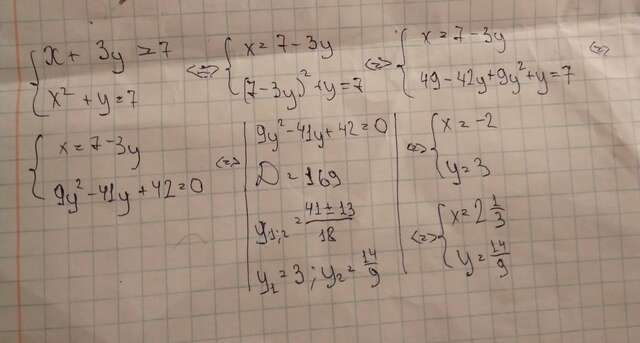 x + 3y = 7
x² + y = 7
<=>
x = 7 - 3y
(7 - 3y)² + y = 7
<=>
x = 7 - 3y
49 - 42y + 9y² + y = 7
<=>
x = 7 - 3y
9y² - 41y + 42 = 0
<=>
9y² - 41y + 42 = 0
D = 169
y₁;₂ = (41 ± 13)/18
y₁ = 3 ; y₂ = 14/9
<=>
x = -2
y = 3
<=>
x = 2 1/3
y = 14/9